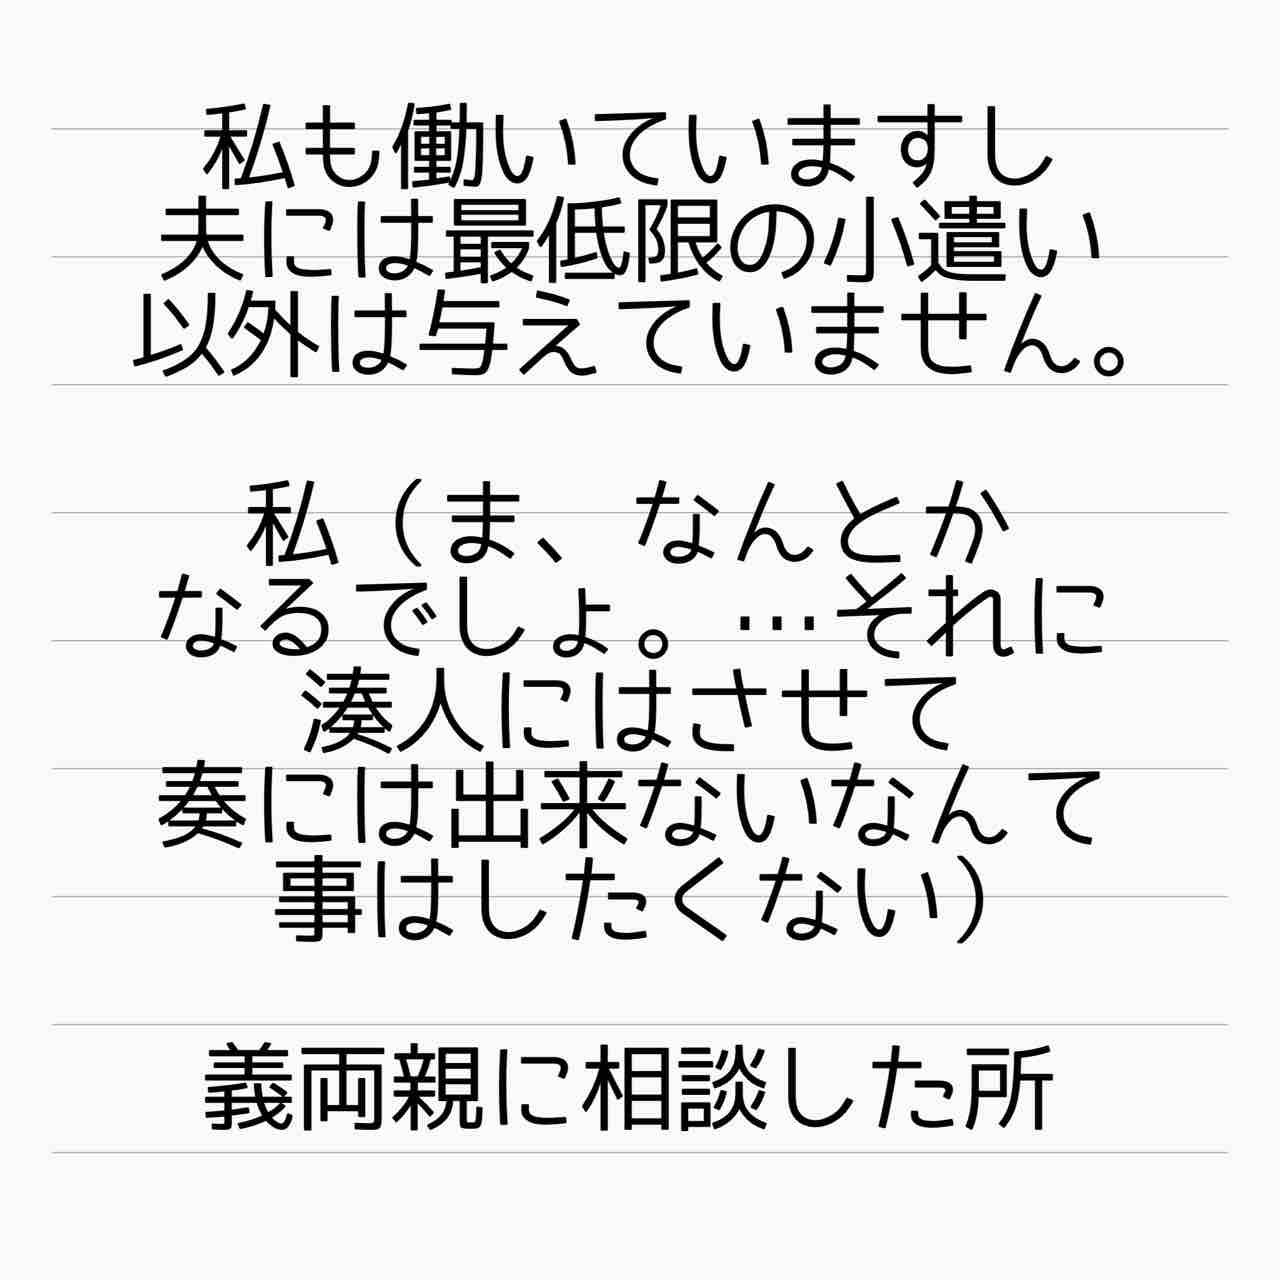 私も働いていますし
夫には最低限の小遣い
以外は与えていません。
私（ま、なんとか
なるでしょ。…それに
湊人にはさせて
奏には出来ないなんて
事はしたくない）
義両親に相談した所